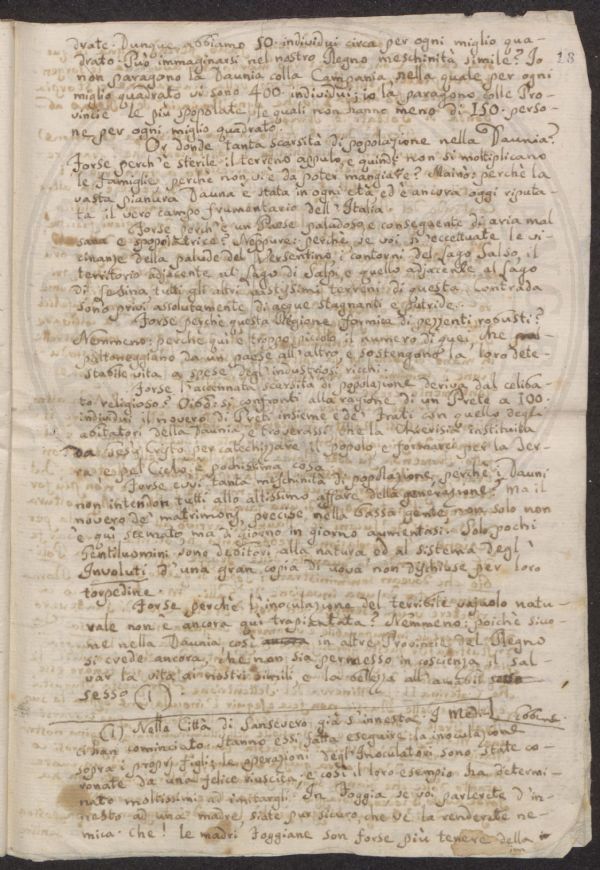 drate. Dunque abbiamo 50. individui circa per ogni miglio qua-
drato. Può immaginarsi nel nostro Regno meschinità simile? Io 18
non paragono la Daunia colla Campania, nella quale per ogni
miglio quadrato vi sono 400. individui; io la paragono colle Pro-
vincie le più popolate, le quali non hanno meno di 150. perso-
ne per ogni miglio quadrato.
Or donde tanta scarsità di popolazione nella Daunia?
Forse perch'è sterile il terreno appulo, e quindi non si moltiplicano
le famiglie, perchè non vi è da poter mangiare? Mainò: perchè la
vasta pianura Dauna è stata in ogni età, ed è ancora oggi riputa-
ta il vero campo frumentario dell'Italia.
Forse perch'è un Paese paludoso, e conseguente di aria mal
sana e spopolatrice? Neppure: perchè se voi si eccettuate le vi-
cinanze della palude del Versentino, i contorni del Lago Salso, il
territorio adjacente al Lago di Salpi, e quello adjacente al Lago
di Lesina, tutti gli altri vastissimi terreni di questa contrada
sono privi assolutamente di acque stagnanti e putride.
Forse perchè questa Regione formica di pezzenti robusti?
Nemmeno: perchè qui è troppo piccolo il numero di quei, che
paltoneggiano da un paese all'altro, e sostengono la loro dete-
stabile vita a spese degl'industriosi ricchi.
Forse l'accennata scarsità di popolazione deriva dal celiba-
to religioso? Oibò: si confronti alla ragione di un Prete a 100.
individui il novero di Preti insieme e de' Frati con quello degli
abitatori della Daunia, e troverassi che la Chieresia instituita
da Gesù Cristo per catechizzare il popolo e formarci per la Ter-
ra e pel Cielo, è pochissima cosa.
Forse evvi tanta meschinità di popolazione, perchè i Dauni
non intendon tutti allo altissimo affare della generazione? Ma il
novero de' matrimonj, precise nella bassa gente, non solo non
è qui stemato ma a giorno in giorno aumentasi. Solo pochi
Gentiluomini sono debitori alla natura ed al sistema degl'
Involuti d'una gran copia di uova non dischiuse per loro
torpedine.
Forse perchè l'inoculazione del terribile vajuolo natu-
rale non è ancora qui trapiantata? Nemmeno: poichè sicco-
me nella Daunia così in altre Provincie del Regno
si crede ancora, che non sia permesso in coscienza il sal-
var la vita ai nostri simili, e la bellezza all'amabil
sesso (1)
(1) Nella Città di Sansevero già s'innesta. I Medici
ci han cominciato. Hanno essi fatta eseguire la inoculazione
sopra i proprj figli; le operazioni degl'Inoculatori sono state co-
ronate da una felice riuscita; e così il loro esempio ha determi-
nato moltissimi ad imitargli. In Foggia se voi parlerete d'in-
nesto ad una madre, siate pur sicuro, che ve la renderete ne-
mica. che! le madri Foggiane son forse più tenere della